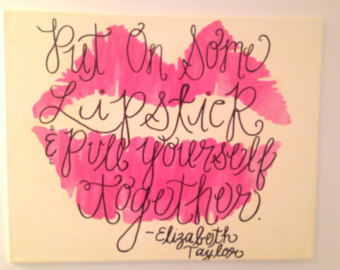 Put On Some
Lipstick
& Pull Yourself
together.
-Elizabeth
Taylor